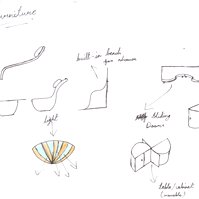 furniture
built-in bench
for
light
sliding
Drawers
table/cabinet
(movable)